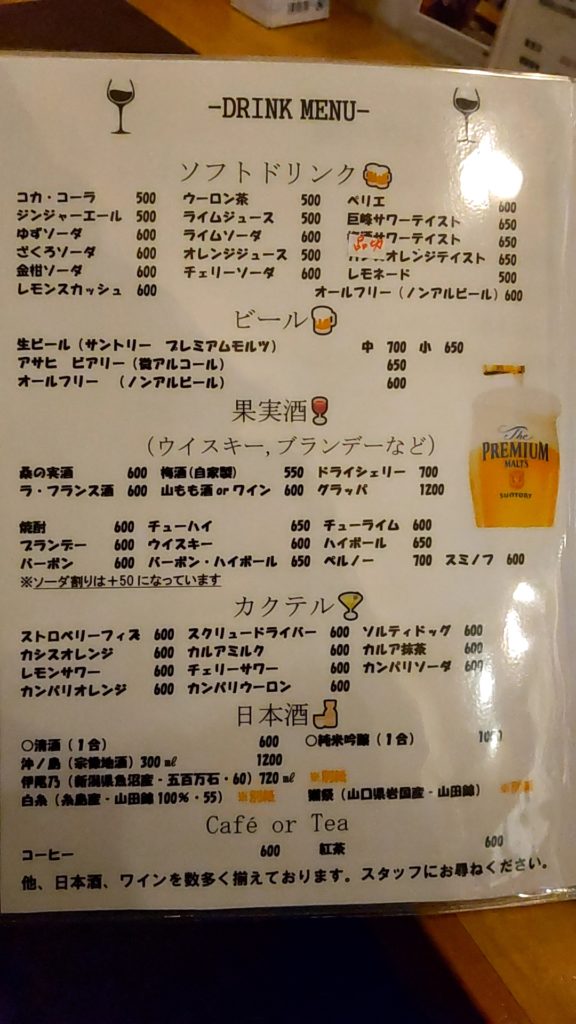 -DRINK MENU-
ソフトドリンク
コカ・コーラ 500 ウーロン茶 500 ペリエ 600
ジンジャーエール 500 ライムジュース 500 巨峰サワーテイスト 650
ゆずソーダ 600 ライムソーダ 600 サワーテイスト 650
品切
ざくろソーダ 600 オレンジジュース 500 オレンジテイスト 650
金柑ソーダ 600 チェリーソーダ 600 レモネード 500
レモンスカッシュ 600 オールフリー(ノンアルビール) 600
ビール
生ビール(サントリー プレミアムモルツ) 中 700 小 650
アサヒ ビアリー(微アルコール) 650
オールフリー (ノンアルビール) 600
果実酒
(ウイスキー,ブランデーなど)
The
PREMIUM
MALT'S
SUNTORY
桑の実酒 600 梅酒(自家製) 550 ドライシェリー 700
ラ・フランス酒 600 山もも酒orワイン 600 グラッパ 1200
焼酎 600 チューハイ 650 チューライム 600
ブランデー 600 ウイスキー 600 ハイボール 650
バーボン 600 バーボン・ハイボール 650 ペルノー 700 スミノフ 600
※ソーダ割りは+50になっています
カクテル
ストロベリーフィズ 600 スクリュードライバー 600 ソルティドッグ 600
カシスオレンジ 600 カルアミルク 600 カルア抹茶 600
レモンサワー 600 チェリーサワー 600 カンパリソーダ 600
カンパリオレンジ 600 カンパリウーロン 600
日本酒
○清酒(1合) 600 ○純米吟醸(1合)
沖ノ島(宗像地酒)300㎖ 1200
伊尾乃(新潟県魚沼産・五百万石・60)720㎖ ※別紙
白糸(糸島産・山田錦100%・55) ※別紙 獺祭(山口県岩国産・山田錦) ※別紙
Café or Tea
コーヒー 600 紅茶 600
他、日本酒、ワインを数多く揃えております。スタッフにお尋ねください。